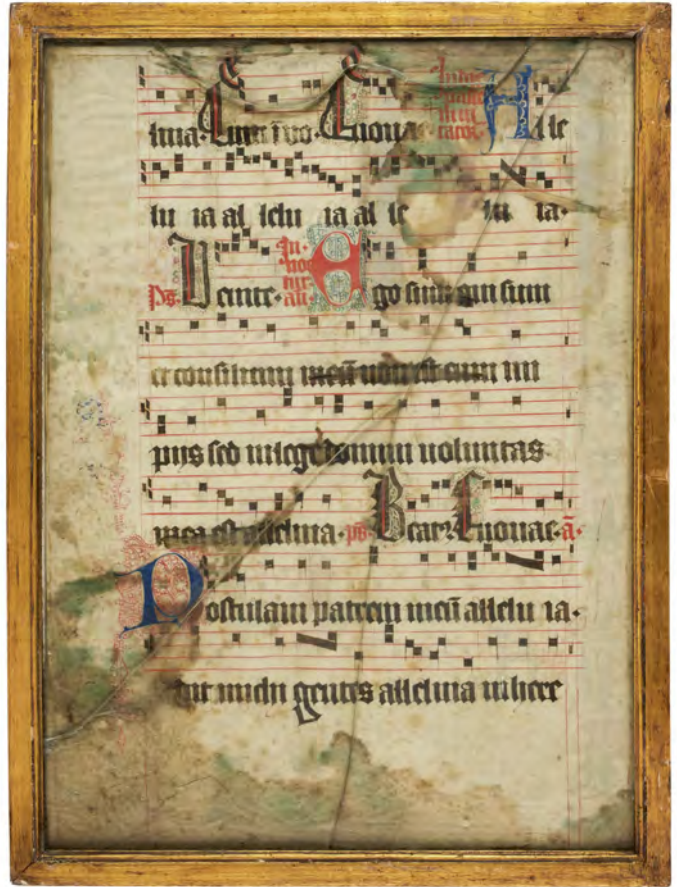 luia. Euouae Alle
lu ia al lelu ia al le lu ia.
ps. Venite. In. noc tur. an. Ego sum qui sum
et consilium meū non est cum im
pijs sed in lege domini uoluntas
mea est alleluia. ps. Beat Euouae. ā.
Postulaui patrem meū allelu ia.
dit michi gentes alleluia in here